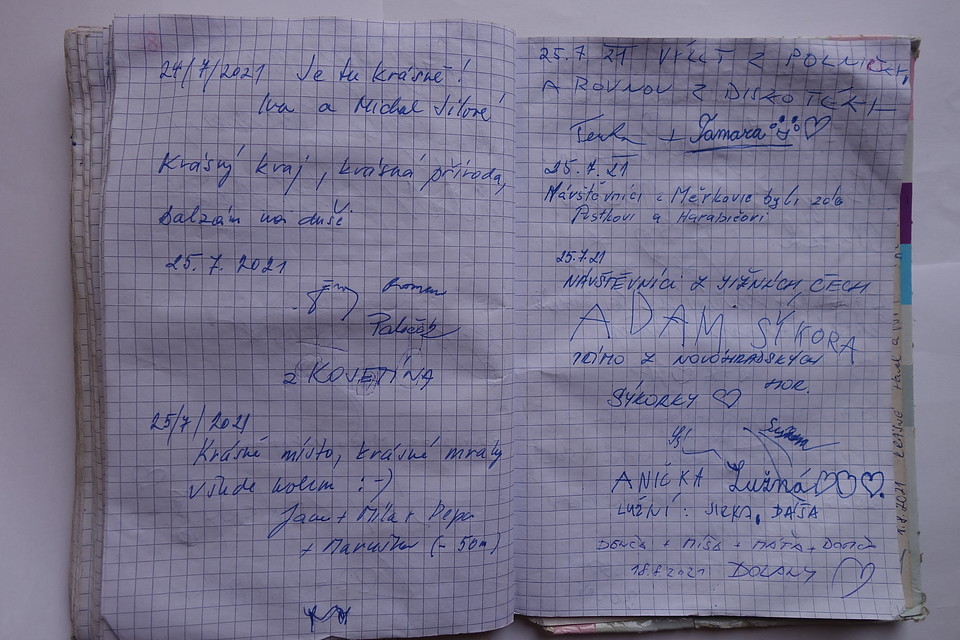 24/7/2021 Je tu krásně!
Iva a Michal Jílové
Krásný kraj, krásná příroda,
balzám na duši.
25. 7. 2021
Roman
z KOJETÍNA
25/7/2021
Krásné místo, krásné mraky
všude kolem :-)
Jana + Míla + Pepa
+ Maruška (- 50m)
25.7 21 VÝLET Z
A ROVNOU Z DISKOTÉKY
Terka + Tamara ♡
25.7.21
Návštěvníci z Měrkovic byli zde
Pustkovi a Harabišovi
25.7.21
NÁVŠTĚVNÍCI Z JIŽNÍCH ČECH
ADAM SÝKORA
PŘÍMO Z NOVOHRADSKÝCH
HOR.
SÝKORKY ♡
ANIČKA Lužná ♡♡♡.
LUŽNÍ: JIRKA, DÁŠA
DENČA + MÍŠA + MÁŤA + DOMČA
18.8 2021 DOLANY ♡
1.8.2021 KRÁSNÉ